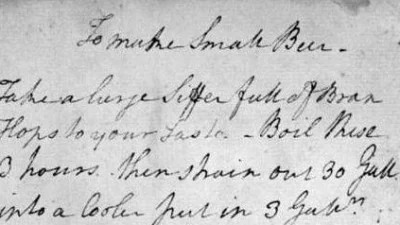 To make Small Beer -
Take a large Siffer full of Bran
Hops to your Taste - Boil these
3 hours. then strain out 30 Gall.
into a Cooler put in 3 Gallns